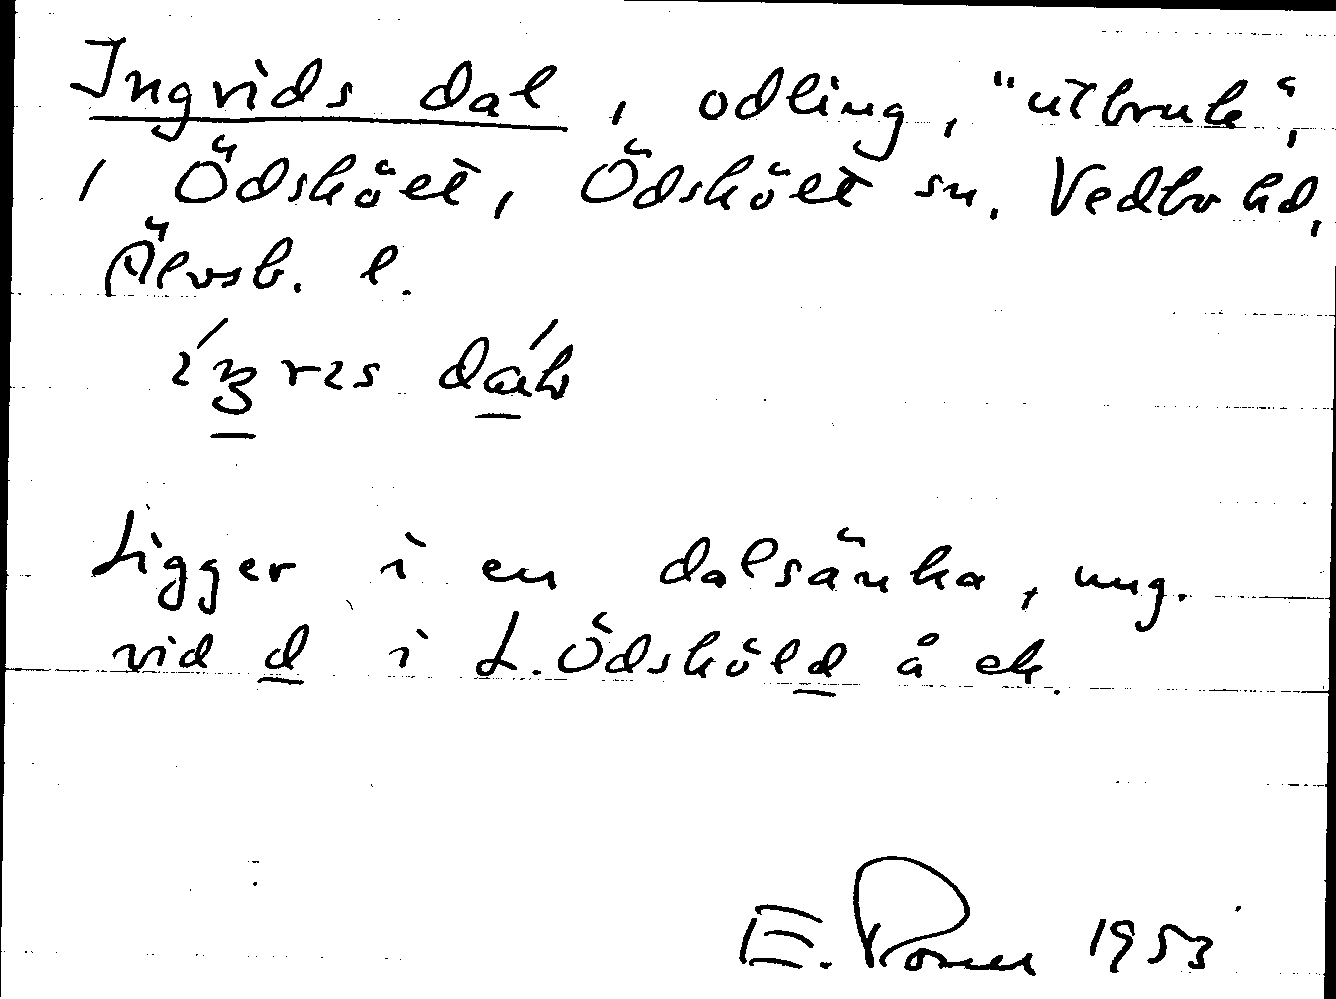 Ingrids dal, odling, "utbruk",
i Ödskölt, Ödskölt sn. Vedbo hd,
Älvsb. l.
Ligger i en dalsänka, ung.
vid d i L. Ödsköld å ek.
E. 1953